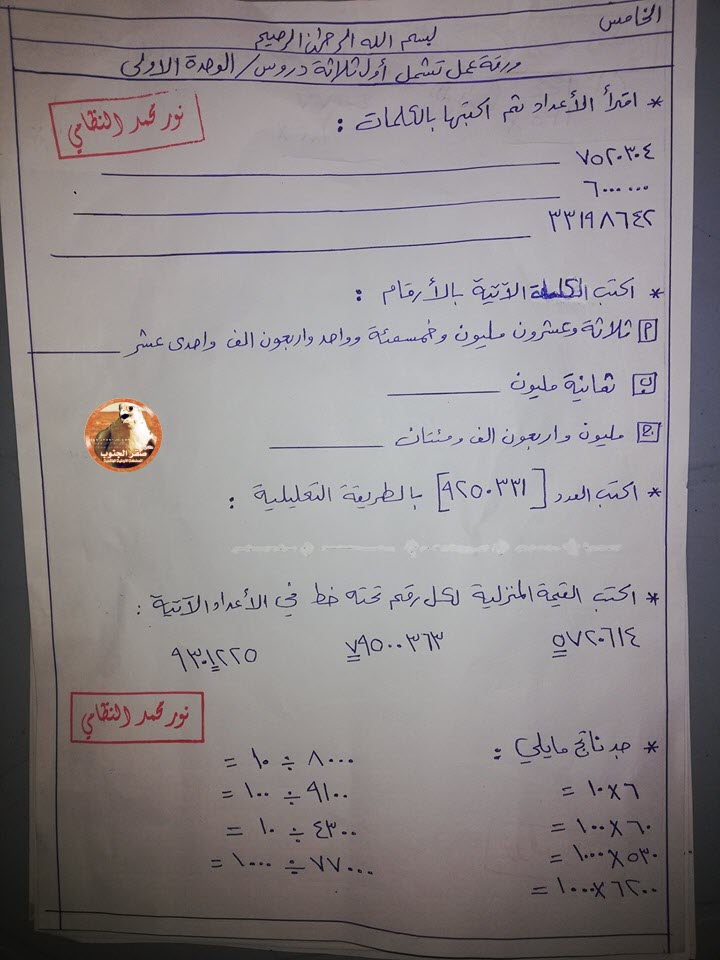 الخامس
بسم الله الرحمن الرحيم
ورقة عمل تشمل أول ثلاثة دروس / الوحدة الاولى
نور محمد النظامي
* اقرأ الأعداد ثم اكتبها بالكلمات :
٧٥٢٠٣٠٤
٦٠٠٠٠٠٠
٣٣١٩٨٦٤٢
* اكتب الآتية بالأرقام :
أ ثلاثة وعشرون مليون وخمسمئة وواحد واربعون الف واحدى عشر
ب ثمانية مليون
ج مليون واربعون الف ومئتان
صقر الجنوب
* اكتب العدد [٩٢٥٠٣٣١] بالطريقة التحليلية :
* اكتب القيمة المنزلية لكل رقم تحته خط في الأعداد الآتية :
٥٧٢٠٦١٤ ٧٩٥٠٠٣٦٣ ٩٣٠١٢٢٥
نور محمد النظامي
* جد ناتج مايلي :
٦ × ١٠ =
٦٠ × ١٠٠ =
٥٣٠ × ١٠٠٠ =
٦٢٠٠ × ١٠٠٠ =
٨٠٠٠ ÷ ١٠ =
٩١٠٠ ÷ ١٠٠ =
٤٣٠٠ ÷ ١٠ =
٧٧٠٠٠ ÷ ١٠٠٠ =